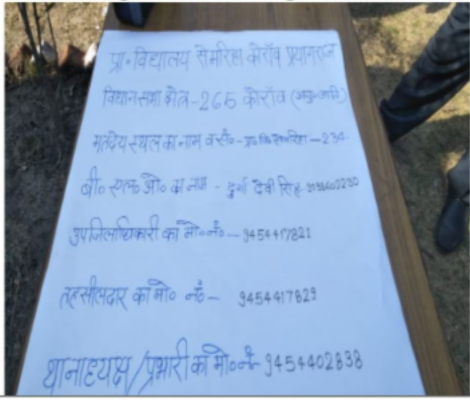 प्रा॰ विद्यालय सेमरिहा कोराँव प्रयागराज
विधानसभा क्षेत्र - 265 कोराँव (अनु॰जाति)
मतदेय स्थल का नाम व सं॰ - प्रा॰ वि॰ सेमरिहा - 234
बी॰ एल॰ ओ॰ का नाम - दुर्गा देवी सिंह
उपजिलाधिकारी का मो॰ नं॰ - 9454417821
तहसीलदार का मो॰ नं॰ - 9454417829
थानाध्यक्ष / प्रभारी का मो॰ नं॰ 9454402838